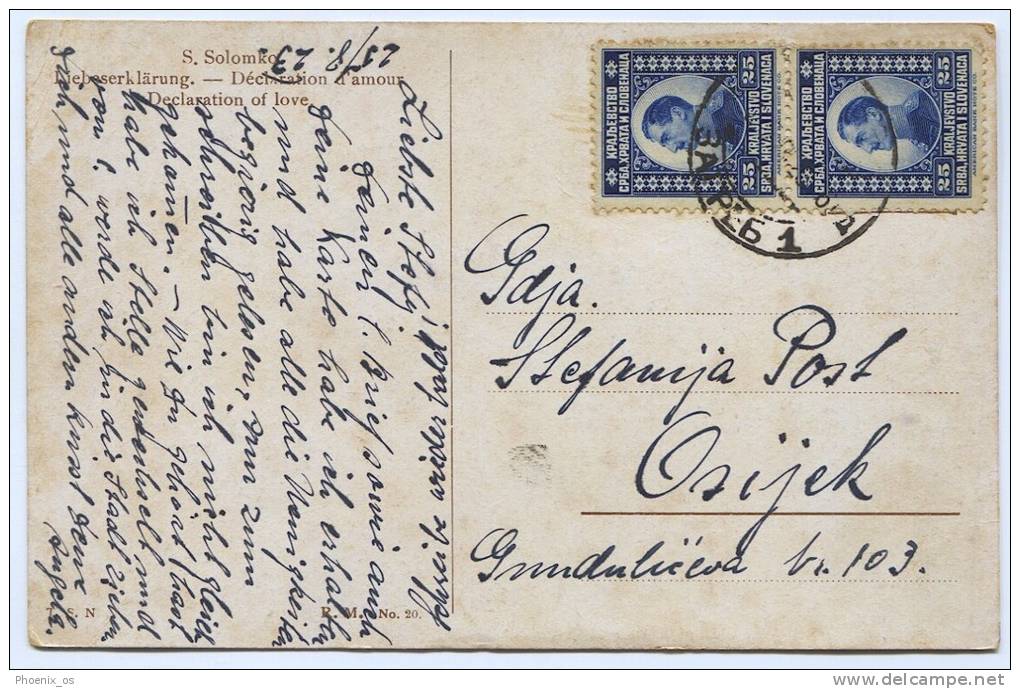 S. Solomko.
Liebeserklärung. — Déclaration d'amour.
Declaration of love.
25/8. 23.
Liebste Stefy!
Deinen l. Brief sowie auch
Deine Karte habe ich erhalten
und habe alle die Neuigkeiten
begierig gelesen, nun zum
schreiben bin ich nicht gleich
gekommen. – Wie Du gehört hast
habe ich Stelle gewechselt und
werde ich in die Stadt ziehen.
Dich und alle andern küsst Deine
Angela.
T. S. N.
R. M. No. 20.
КРАЉЕВСТВО
СРБА, ХРВАТА И СЛОВЕНАЦА
25
25
KRALJEVSTVO
SRBA, HRVATA I SLOVENACA
AMERICAN BANK NOTE CO.
КРАЉЕВСТВО
СРБА, ХРВАТА И СЛОВЕНАЦА
25
25
KRALJEVSTVO
SRBA, HRVATA I SLOVENACA
AMERICAN BANK NOTE CO.
ЗАГРЕБ 1
Gdja.
Stefanija Post
Osijek
Gundulićeva br. 103.
Phoenix_os
delcampe.net